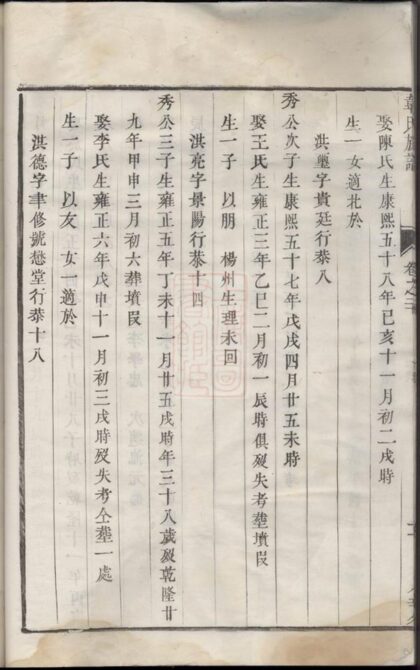 氏族譜
卷之
娶陳氏生康熙五十八年己亥十一月初二戌時
生一女適北於
洪璽字貴廷行恭八
秀公次子生康熙五十七年戊戌四月廿五未時
娶王氏生雍正三年乙巳二月初一辰時俱歿失考塟墳叚
生一子 以朋 楊州生理未回
洪亮字景陽行恭十四
秀公三子生雍正五年丁未十一月廿五戌時年三十八歲歿乾隆廿
九年甲申三月初六塟墳叚
娶李氏生雍正六年戊申十一月初三戌時歿失考仝塟一處
生一子 以友 女一適於
洪德字聿修號懋堂行恭十八